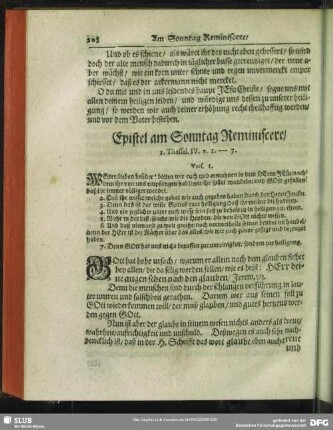 208 Am Sonntag Reminiscere/
Und ob es schiene/ als wäret ihr des nicht eben gebessert/ so wird
doch der alte mensch dadurch in täglicher busse gecreutziget/ der neue a-
ber wächst/ wie ein korn unter schnee und regen unvermerckt empor
schiesset/ daß es der ackermann nicht mercket.
O du mit uns und in uns leidendes haupt JEsu Christe/ segne uns mit
allen deinem heiligen leiden/ und würdige uns dessen zu unserer heili-
gung/ so werden wir auch deiner erhöhung recht theilhafftig werden/
und vor dem Vater bestehen.
Epistel am Sonntag Reminiscere/
1. Thessal. IV. v. 1. — 7.
Vers. 1.
WEiter lieben brüder/ bitten wir euch und ermahnen in dem HErrn JEsu nach-
dem ihr von uns empfangen habt wie ihr sollet wandeln und GOtt gefallen/
daß ihr immer völliger werdet.
2. Denn ihr wisset welche gebot wir euch gegeben haben durch den HErrn JEsum.
3. Denn das ist der wille GOttes eure heiligung daß ihr meidet die hurerey.
4. Und ein jeglicher unter euch wisse sein faß zu behalten in heiligung und ehren.
5. Nicht in der lust seuche wie die Heyden die von GOtt nichts wissen.
6. Und daß niemand zu weit greiffe noch vervortheile seinen bruder im handel/
denn der HErr ist der Rächer über das alles/ wie wir euch zuvor gesagt und bezeuget
haben.
7. Denn GOtt hat uns nicht beruffen zur unreinigkeit/ sondern zur heiligung.
GOtt hat hohe ursach/ warum er allein nach dem glauben siehet
bey allen/ die da selig werden sollen/ wie es heist: HErr dei-
ne augen sehen nach dem glauben. Jerem.
Denn die menschen sind durch der schlangen verführung in lau-
ter untreu und falschheit gerathen. Darum wer aus seinem fall zu
GOtt wiederkommen will/ der muß glauben/ und gutes hertzens wer-
den gegen GOtt.
Nun ist aber der glaube in seinem wesen nichts anders als treue/
wahrheit/ aufrichtigkeit und unschuld. Deßwegen es auch sehr nach-
dencklich ist/ daß in der H. Schrifft das wort glaube eben auch treue
und
SLUB
Wir führen Wissen.
http://digital.slub-dresden.de/
gefördert von der
Deutschen Forschungsgemeinschaft
DFG